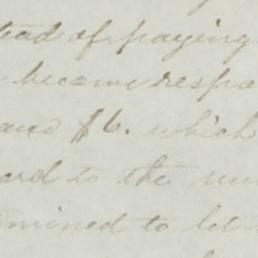 tead of paying
become respo
and $6. which
ard to the
mined to let